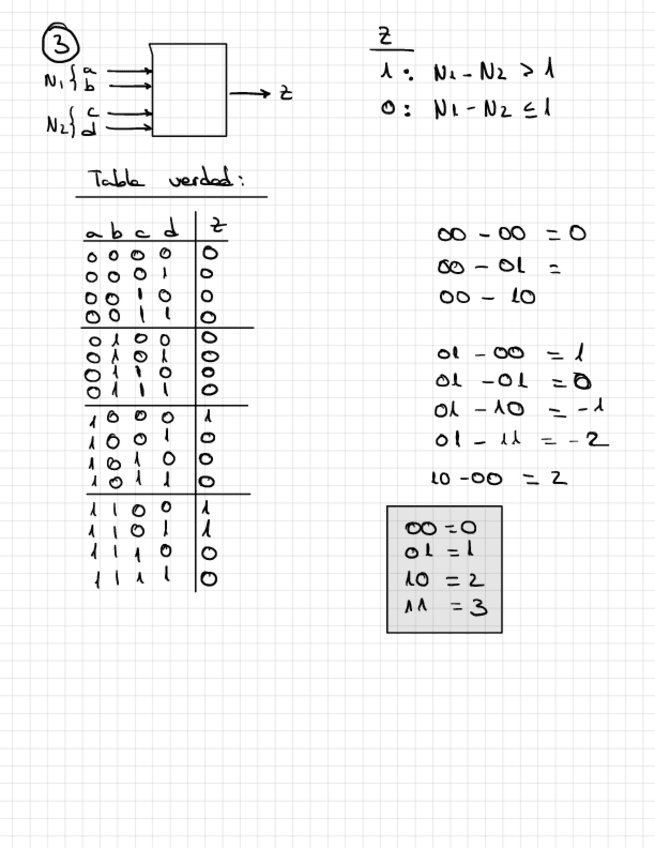 3
N1 { a
b
N2 { c
d
z
z
1: N1 - N2 > 1
0: N1 - N2 ≤ 1
Tabla verdad:
a b c d z
0 0 0 0 0
0 0 0 1 0
0 0 1 0 0
0 0 1 1 0
0 1 0 0 0
0 1 0 1 0
0 1 1 0 0
0 1 1 1 0
1 0 0 0 1
1 0 0 1 0
1 0 1 0 0
1 0 1 1 0
1 1 0 0 1
1 1 0 1 1
1 1 1 0 0
1 1 1 1 0
00 - 00 = 0
00 - 01 =
00 - 10
01 - 00 = 1
01 - 01 = 0
01 - 10 = -1
01 - 11 = -2
10 - 00 = 2
00 = 0
01 = 1
10 = 2
11 = 3